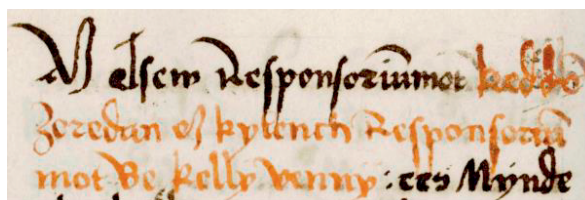 Az elsew Responsoriūmot
Zeredan es kylench Responsoriū
mot Be kelly venny : ees Mynde